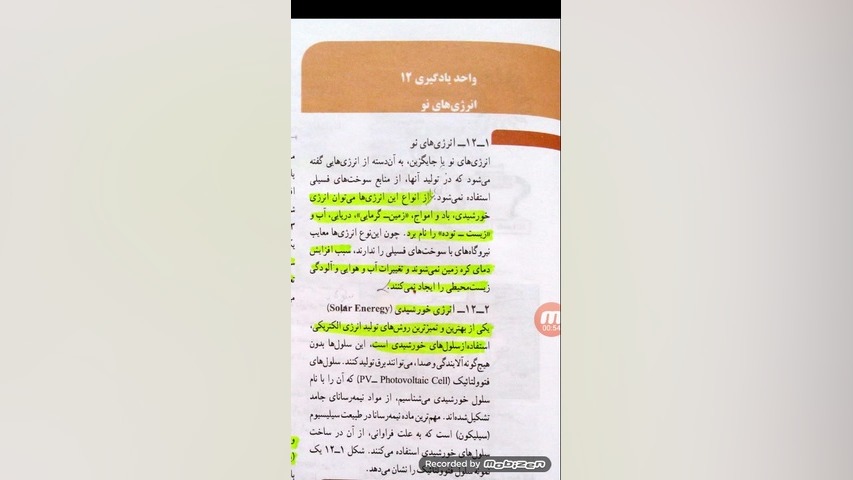 واحد یادگیری ۱۲
انرژی‌های نو
۱ــ۱۲ــ انرژی‌های نو
انرژی‌های نو یا جایگزین، به آن‌دسته از انرژی‌هایی گفته
می‌شود که در تولید آنها، از منابع سوخت‌های فسیلی
استفاده نمی‌شود. از انواع این انرژی‌ها می‌توان انرژی
خورشیدی، باد و امواج، «زمین‌ــ گرمایی»، دریایی، آب و
«زیست ــ توده» را نام برد. چون این‌نوع انرژی‌ها معایب
نیروگاه‌های با سوخت‌های فسیلی را ندارند، سبب افزایش
دمای کره زمین نمی‌شوند و تغییرات آب و هوایی و آلودگی
زیست‌محیطی را ایجاد نمی‌کنند.
۲ــ۱۲ــ انرژی خورشیدی (Solar Eneregy)
یکی از بهترین و تمیزترین روش‌های تولید انرژی الکتریکی،
استفاده‌از‌سلول‌های خورشیدی است. این سلول‌ها بدون
هیچ‌گونه‌آلایندگی و صدا، می‌توانند برق تولید کنند. سلول‌های
فتوولتائیک (PV ــ Photovoltaic Cell) که آن را با نام
سلول خورشیدی می‌شناسیم، از مواد نیمه‌رسانای جامد
تشکیل‌شده‌اند. مهم‌ترین ماده نیمه‌رسانا در طبیعت سیلیسیوم
(سیلیکون) است که به علت فراوانی، از آن در ساخت
سلول‌های خورشیدی استفاده می‌کنند. شکل ۱ــ۱۲ یک
نمونه سلول فتوولتائیک را نشان می‌دهد.
00:54
Recorded by mobizen